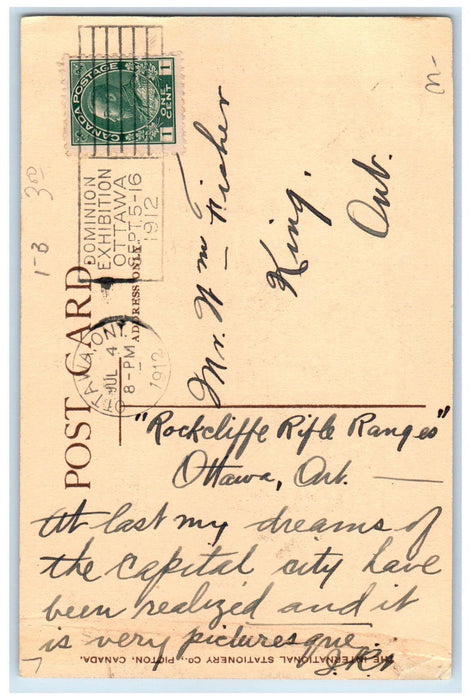 CANADA POSTAGE
1 ONE CENT 1
DOMINION
EXHIBITION
OTTAWA
SEPT. 5-16
1912
OTTAWA, ONT.
JUL 4
8-PM
1912
POST CARD
ADDRESS ONLY.
1-B 3.00
Mr. Wm Fisher
King.
Ont.
"Rockcliffe Rifle Ranges"
Ottawa, Ont.
At last my dreams of
the capital city have
been realized and it
is very picturesque.
THE INTERNATIONAL STATIONERY CO., PICTON, CANADA.